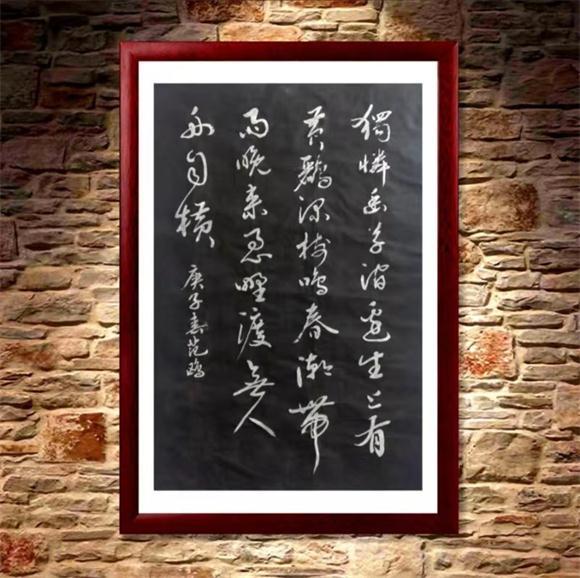 獨憐幽草澗邊生上有
黄鸝深樹鳴春潮帶
雨晚来急野渡無人
舟自横
庚子春范